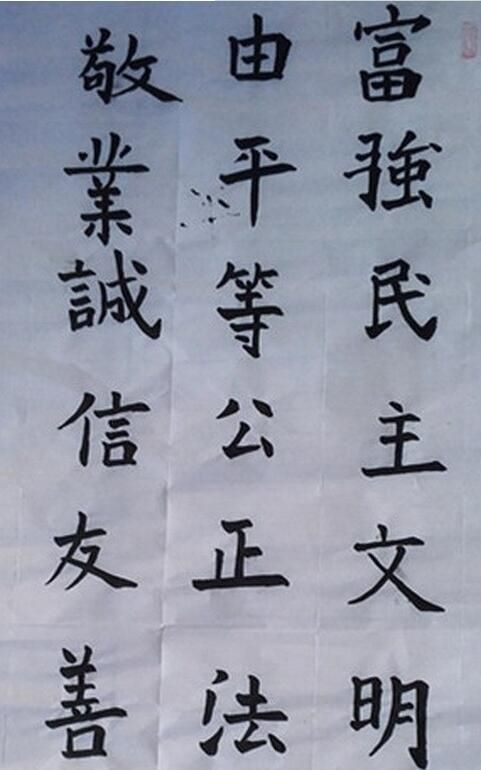 富強民主文明
由平等公正法
敬業誠信友善